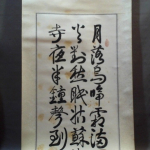 月落烏啼霜滿
火對愁眠姑蘇
寺夜半鐘聲到